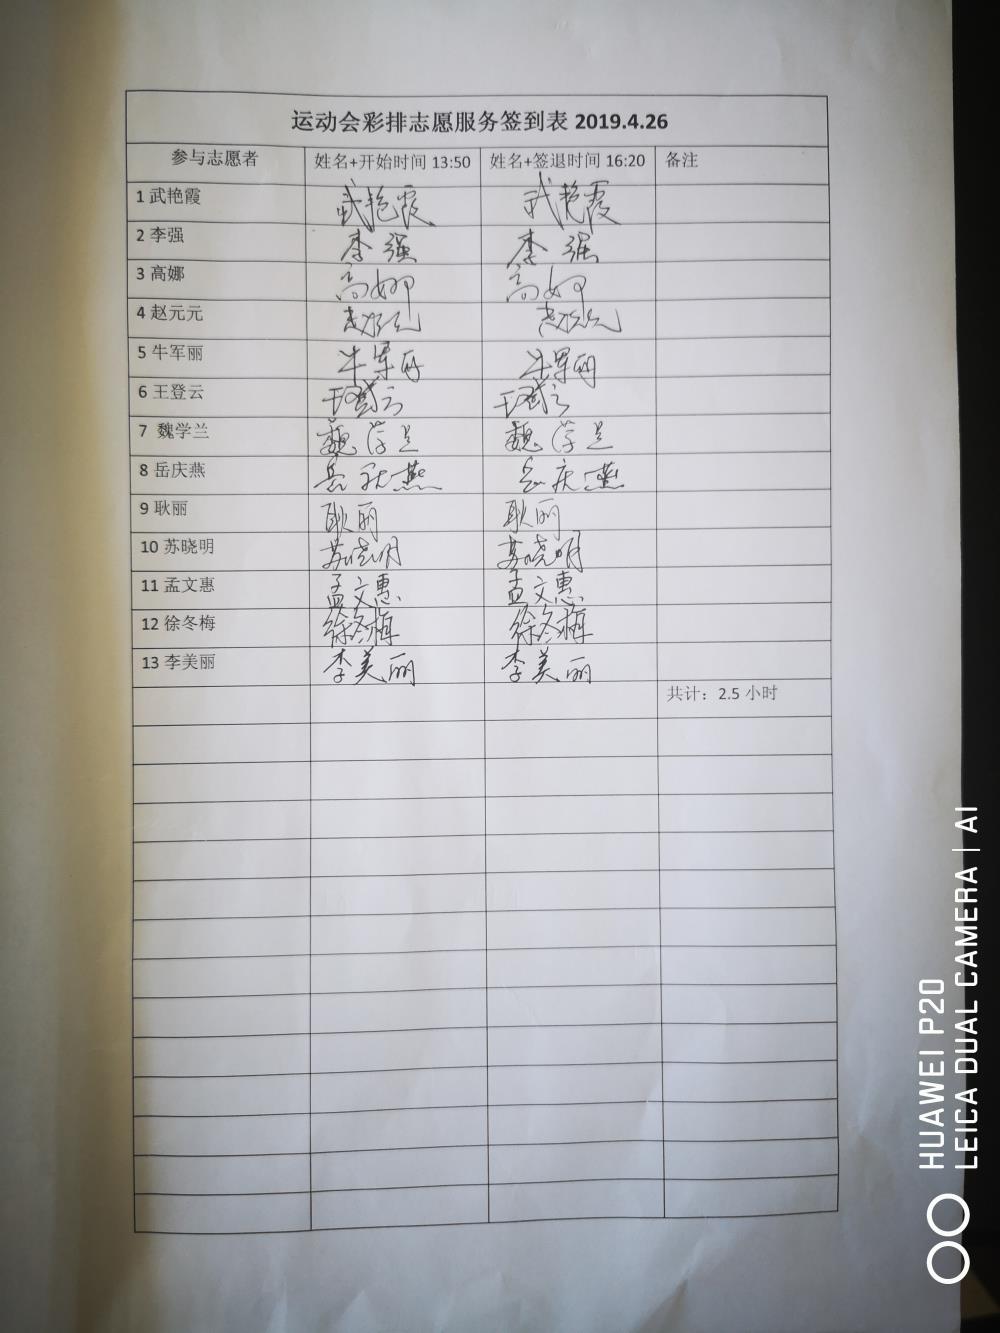 运动会彩排志愿服务签到表 2019.4.26
参与志愿者 姓名+开始时间 13:50 姓名+签退时间 16:20 备注
1 武艳霞 武艳霞 武艳霞
2 李强 李强 李强
3 高娜 高娜 高娜
4 赵元元 赵元元 赵元元
5 牛军丽 牛军丽 牛军丽
6 王登云 王登云 王登云
7 魏学兰 魏学兰 魏学兰
8 岳庆燕 岳庆燕 岳庆燕
9 耿丽 耿丽 耿丽
10 苏晓明 苏晓明 苏晓明
11 孟文惠 孟文惠 孟文惠
12 徐冬梅 徐冬梅 徐冬梅
13 李美丽 李美丽 李美丽
共计：2.5 小时
HUAWEI P20
LEICA DUAL CAMERA | AI